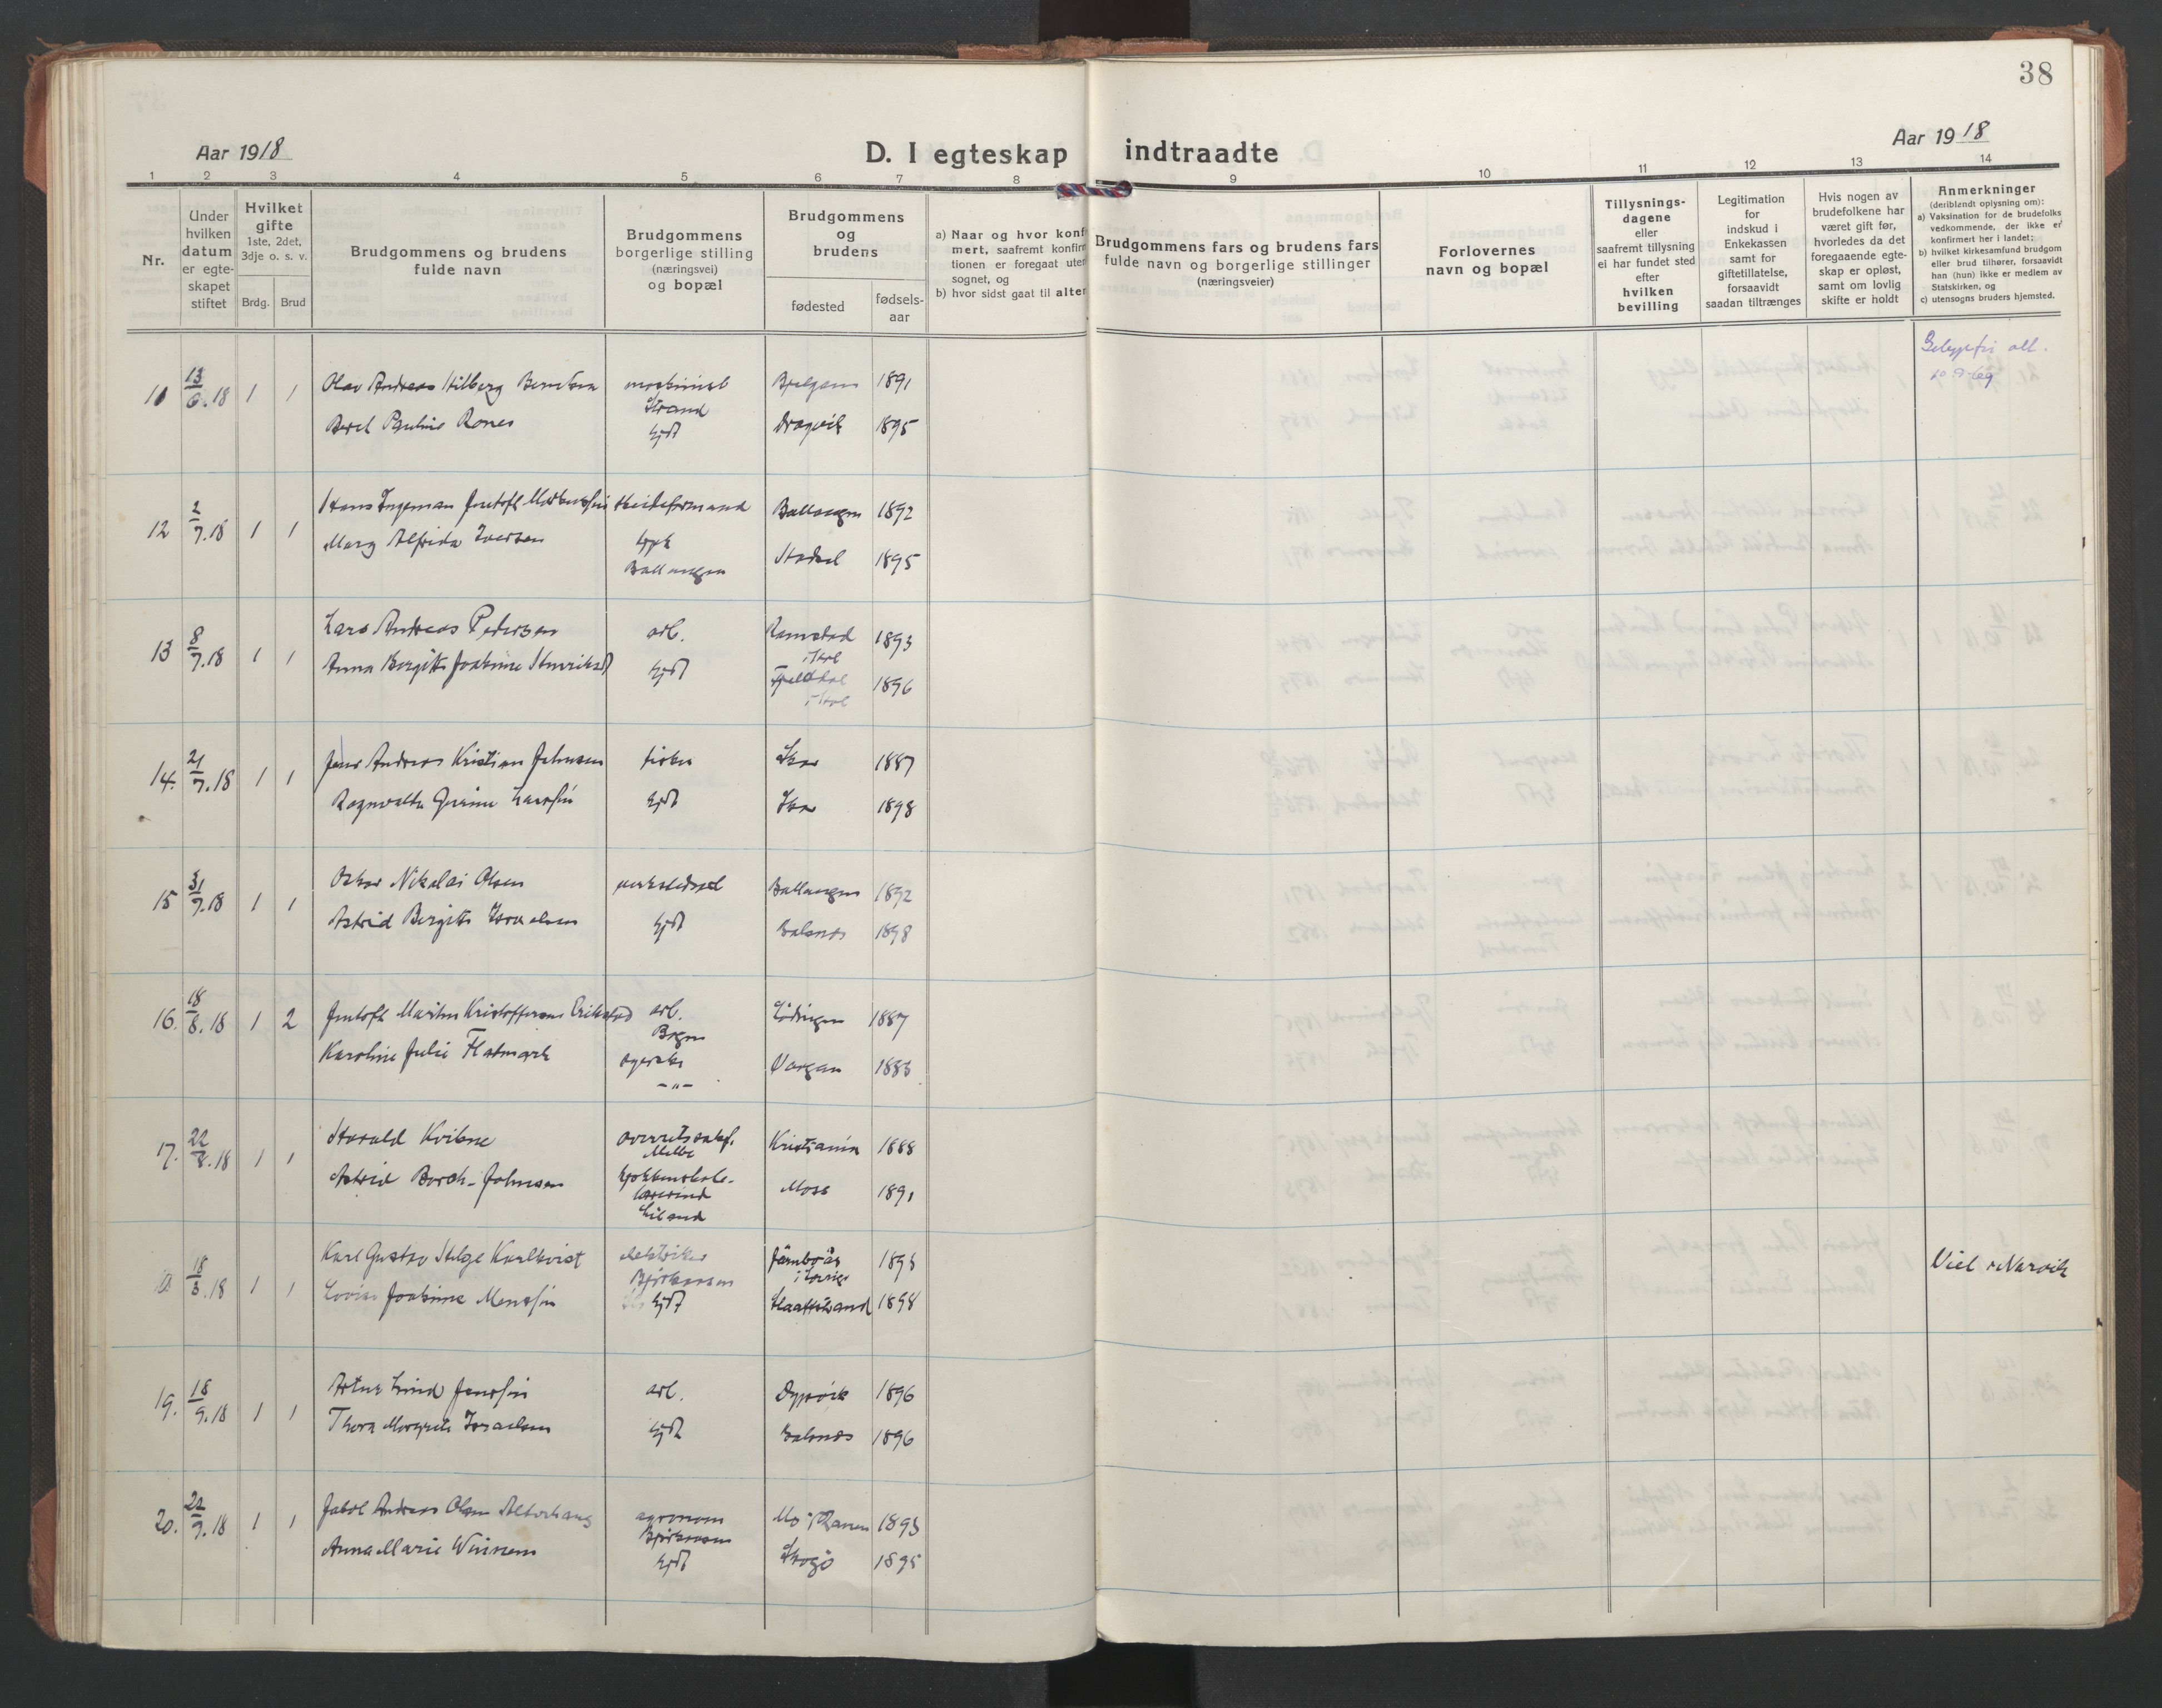 38
Aar 1918
D. I egteskap indtraadte
Aar 1918
1 2 3 4 5 6 7 8 9 10 11 12 13 14
Nr.
Under hvilken datum er egteskapet stiftet
Hvilket gifte
1ste, 2det, 3dje o. s. v.
Brdg. Brud
Brudgommens og brudens fulde navn
Brudgommens borgerlige stilling (næringsvei) og bopæl
Brudgommens og brudens
fødested
fødsels-aar
a) Naar og hvor konf
mert, saafremt konfir
tionen er foregaat uter
sognet, og
b) hvor sidst gaat til alter
Brudgommens fars og brudens fars
fulde navn og borgerlige stillinger
(næringsveier)
Forlovernes
navn og bopæl
Tillysnings-
dagene
eller
saafremt tillysning
ei har fundet sted
efter
hvilken
bevilling
Legitimation
for
indskud i
Enkekassen
samt for
giftetillatelse,
forsaavidt
saadan tiltrænges
Hvis nogen av
brudefolkene har
været gift før,
hvorledes da det
foregaaende egte-
skap er opløst,
samt om lovlig
skifte er holdt
Anmerkninger
(deriblandt oplysning om):
a) Vaksination for de brudefolks
vedkommende, der ikke er
konfirmert her i landet;
b) hvilket kirkesamfund brudgom
eller brud tilhører, forsaavidt
han (hun) ikke er medlem av
Statskirken, og
c) utensogns bruders hjemsted.
11 13/6.18 1 1 Olav Andreas Hilberg Berntsen maskinist 1891
Strand
Berit Pauline Rones hjst Dragvik 1895
12 2/7.18 1 1 Hans Ingeman Jentoft Ballangen 1892
Marg Alfrida Iversen Stadsel 1895
Ballangen
13 8/7.18 1 1 Lars Andreas Pedersen arb. Ramstad 1893
Anna Bergitte Joakime hjst 1896
14. 21/7.18 1 1 Jens Andreas Kristian Johnsen fisker Skar 1887
Ragnvalda Gurine Larssen hjst Skar 1898
15 31/7.18 1 1 Oskar Nikolai Olsen Ballangen 1892
Astrid Bergitte Israelsen hjst Salsnes 1898
16. 18/8.18 1 2 Jentoft Martin Kristoffersen Erikstad arb. Lødingen 1887
Bogen
Karoline Julie Flatmark Vargan 1883
-"-
17. 22/8.18 1 1 Harald Kvibne overretssakf. Kristiania 1888
Melbo
Astrid Borch-Johnsen Moss 1891
Liland
18/3.18 1 1 Karl Gustav Helge Karlkvist elektriker 1893
Bjørkaasen i Sverige
Lovise Joakime Monssen hjst 1898
Viet i Narvik
19. 18/9.18 1 1 Artur Lind Jenssen arb. Dypvik 1896
Thora Margrete Israelsen hjst Salsnes 1896
20. 22/9.18 1 1 Jakob Andreas Olsen agronom Mo i Ranen 1893
Bjørkaasen
Anna Marie Winnem hjst Skogö 1895